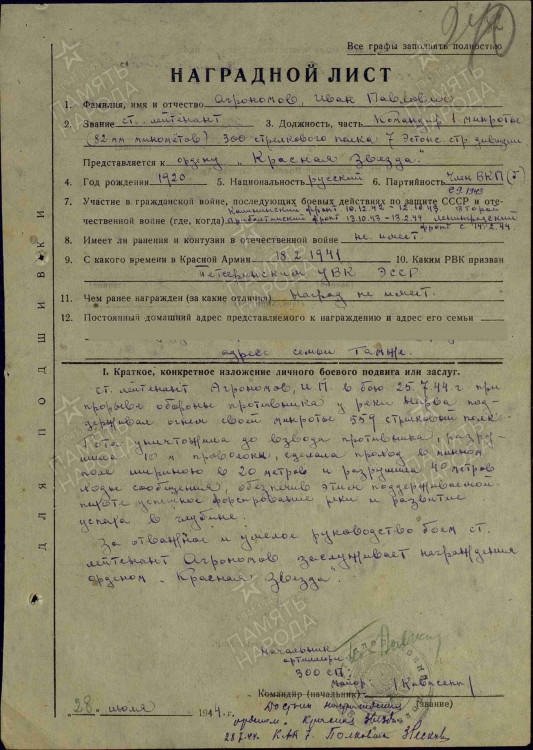 242
Все графы заполнять полностью
НАГРАДНОЙ ЛИСТ
1. Фамилия, имя и отчество Агрономов, Иван Павлович
2. Звание ст. лейтенант 3. Должность, часть Командир 1 минроты
(82 мм минометов) 300 стрелкового полка 7 Эстонс. стр. дивизии
Представляется к ордену „Красная Звезда"
4. Год рождения 1920 5. Национальность русский 6. Партийность Член ВКП(б)
с 1943
7. Участие в гражданской войне, последующих боевых действиях по защите СССР и оте-
чественной войне (где, когда) Калининский фронт 10.12.42 - 12.10.43 второй
Прибалтийский фронт 13.10.43-13.2.44. Ленинградский
фронт с 14.2.44.
8. Имеет ли ранения и контузии в отечественной войне не имеет
9. С какого времени в Красной Армии 18.2.1941 10. Каким РВК призван
Петсериским УВК ЭССР
11. Чем ранее награжден (за какие отличия) Наград не имеет.
12. Постоянный домашний адрес представляемого к награждению и адрес его семьи
адрес семьи Та же.
I. Краткое, конкретное изложение личного боевого подвига или заслуг.
ст. лейтенант Агрономов, И.П. в бою 25.7.44 г при
прорыве обороны противника у реки Нарва под-
держивал огнем своей минроты 559 стрелковый полк
Рота уничтожила до взвода противника, разру-
шила 10 м проволоки, сделала проход в минном
поле шириною в 20 метров и разрушила 40 метров
хода сообщения, обеспечив этим поддерживаемой
пехоте успешное форсирование реки и развитие
успеха в глубине.
За отважное и умелое руководство боем ст.
лейтенант Агрономов заслуживает награждения
орденом „Красная Звезда".
Начальник
артиллерии
300 СП:
майор:
Командир (начальник)
(звание)
28 июля 1944 г.
Достоин награждения
орденом Красная Звезда
28.7.44. К-Д 7. Полковник
ДЛЯ ПОДШИВКИ
ПАМЯТЬ НАРОДА